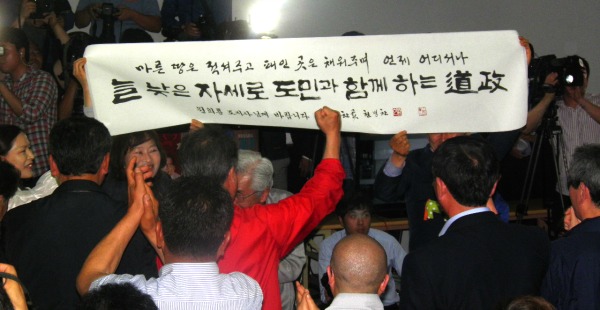 마른 땅은 적셔주고 패인 곳은 채워주며 언제 어디서나
늘 낮은 자세로 도민과 함께 하는 道政
바랍니다